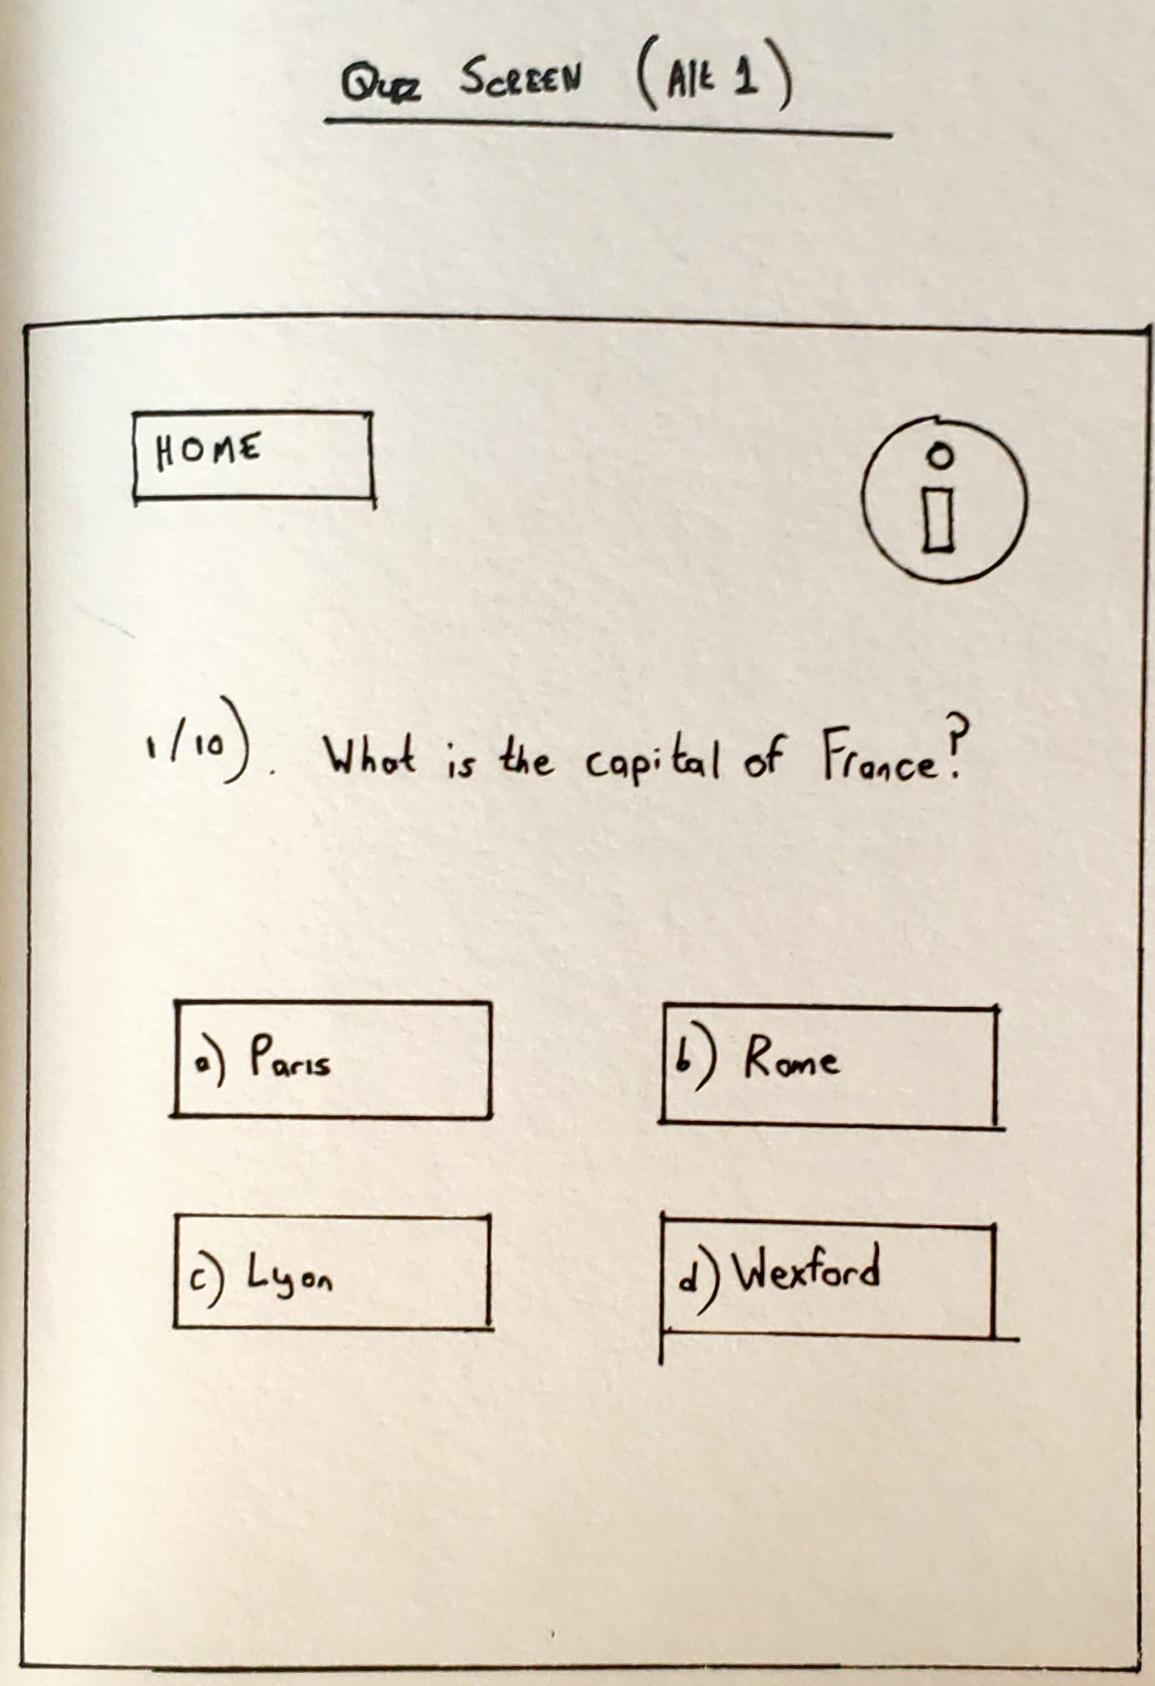 Quiz SCREEN (Alt 1)
HOME
i
1/10). What is the capital of France?
a) Paris
b) Rome
c) Lyon
d) Wexford